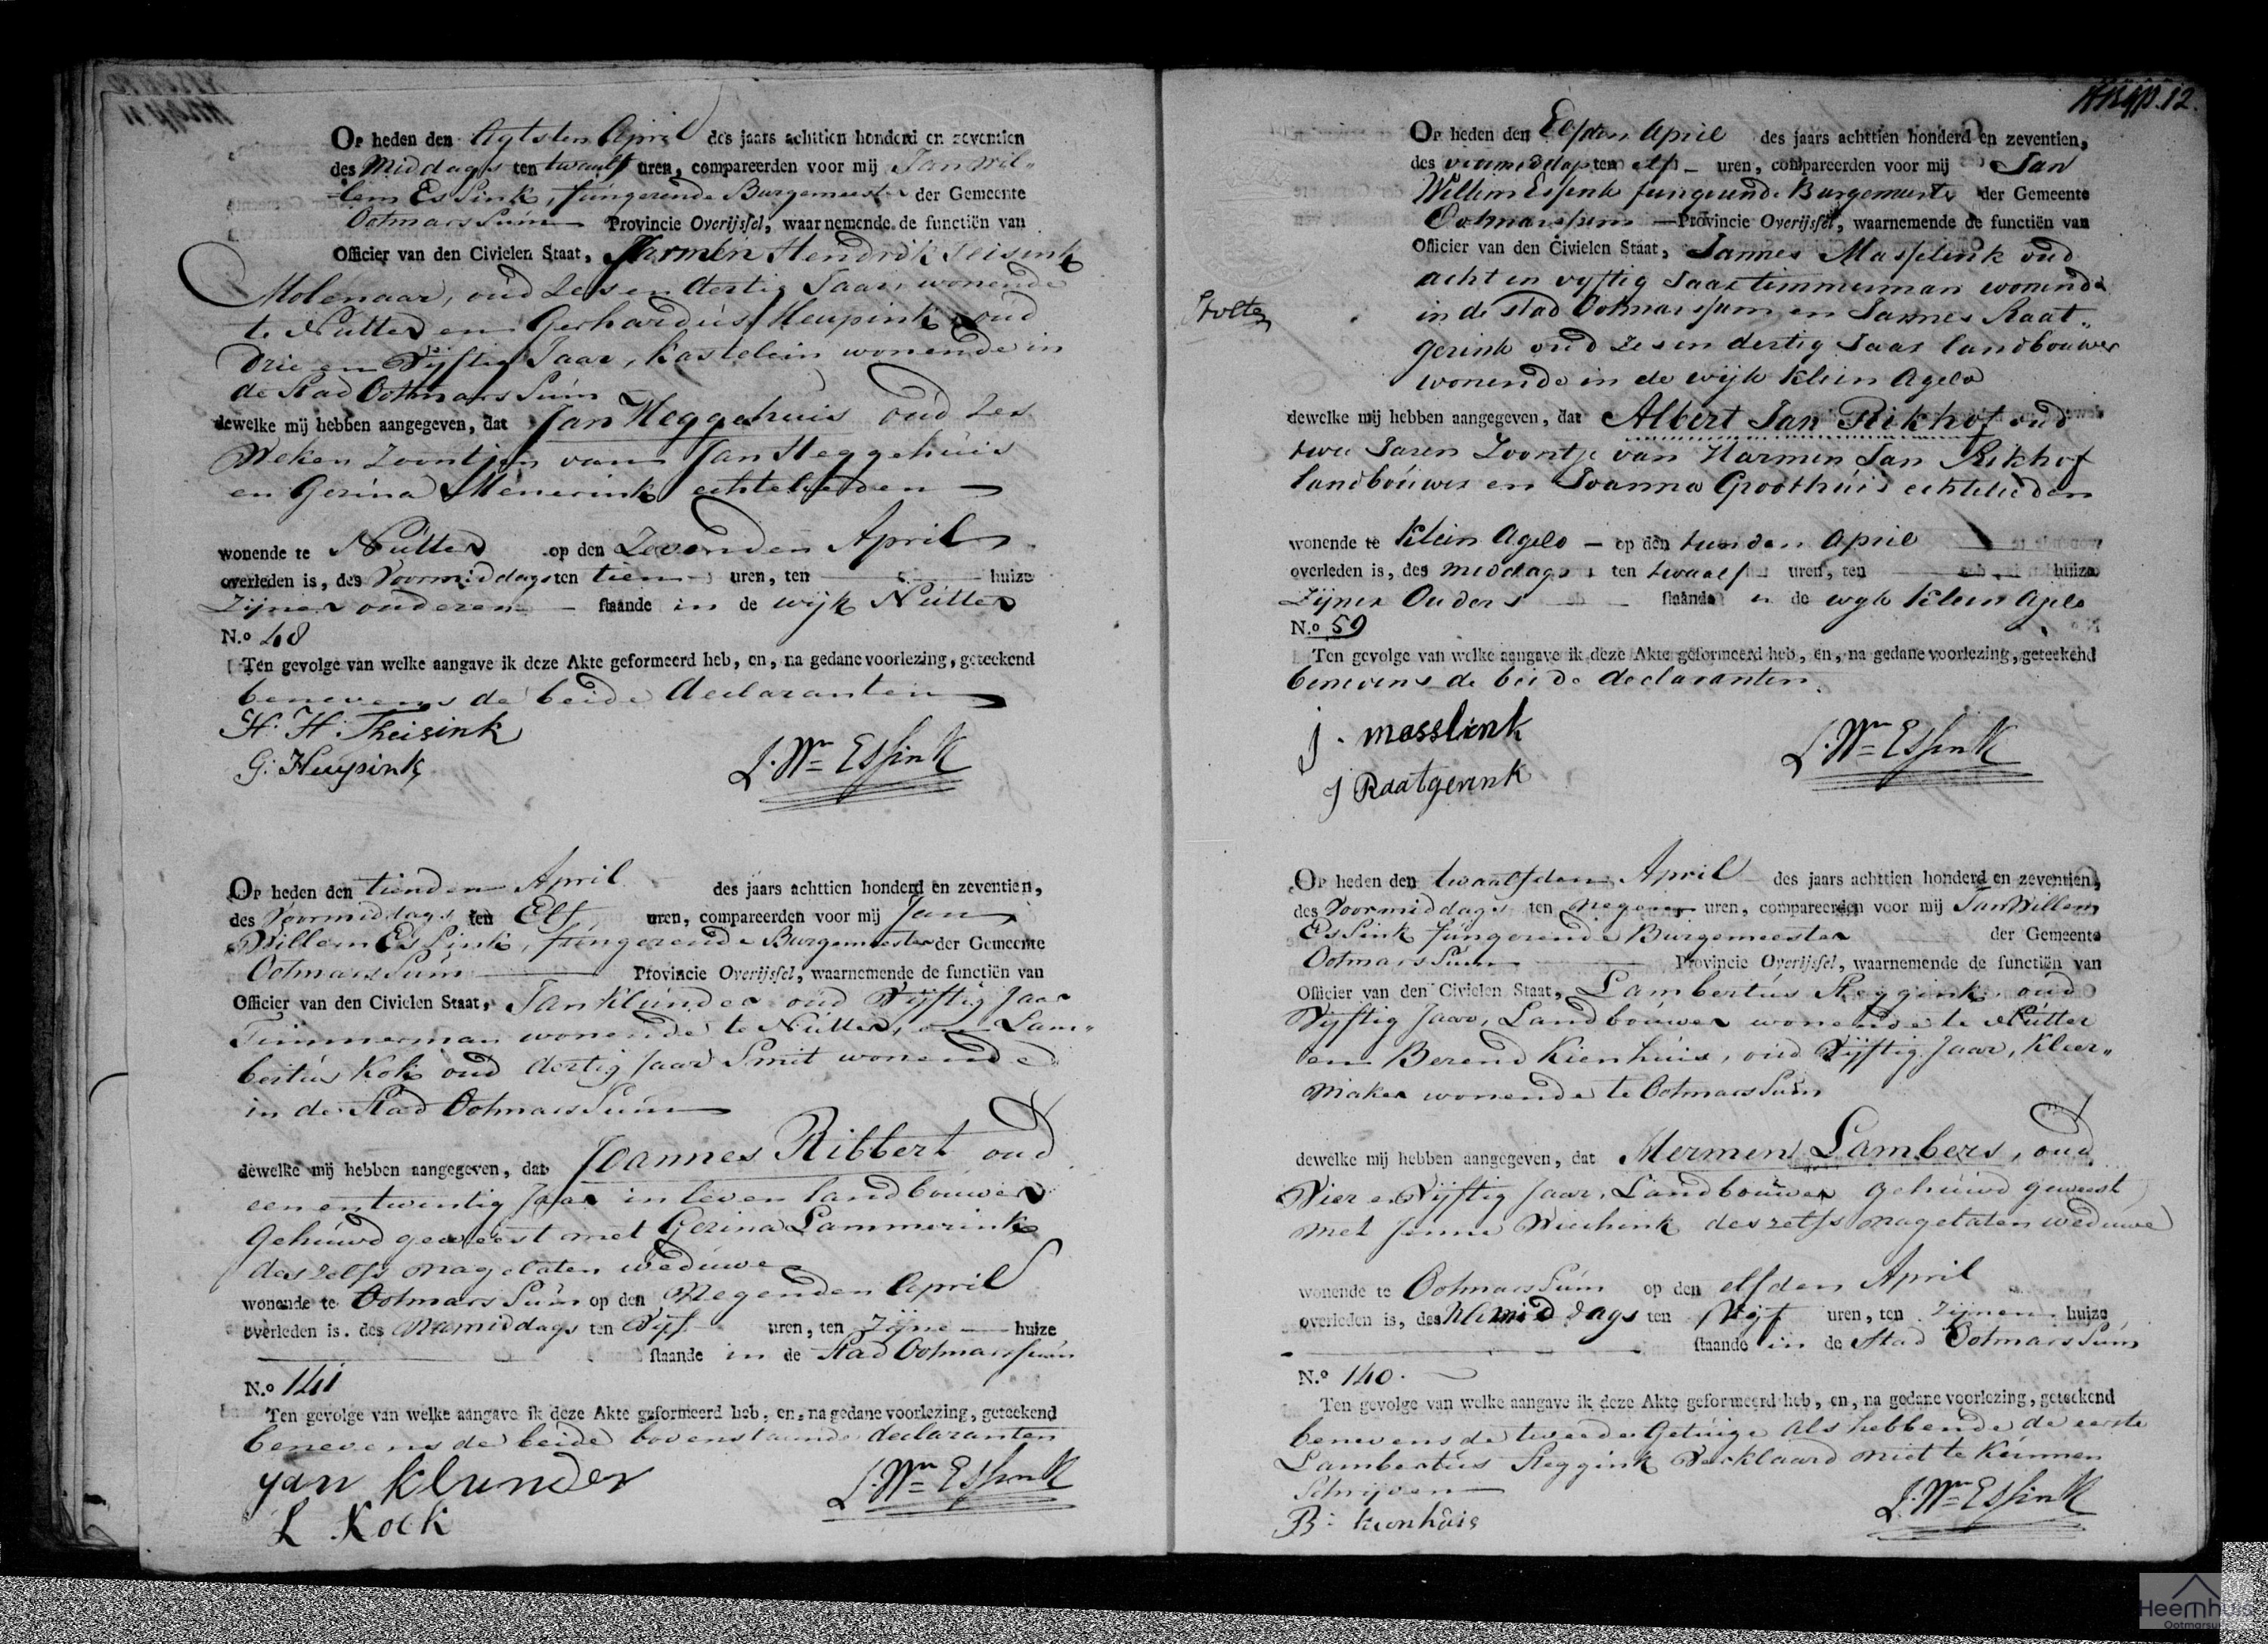 Op heden den Agtsten April des jaars achttien honderd en zeventien
des Middags ten twaalf uren, compareerden voor mij Jan Wil„
lem Essink, fungerende Burgemeester der Gemeente
Ootmarssum Provincie Overijssel, waarnemende de functiën van
Officier van den Civielen Staat, Harmen Hendrik Teisink
Molenaar, oud Zes en dertig Jaar, wonende
te Nutter en Gerhardus Heupink oud
Drie en Vijftig Jaar, Kastelein wonende in
de Stad Ootmarssum
dewelke mij hebben aangegeven, dat Jan Heggehuis oud Zes
Weken Zoontjen van Jan Heggehuis
en Gerina Menerink echtelieden
wonende te Nutter op den Zevenden April
overleden is, des Voormiddags ten tien uren, ten huize
Zijner ouderen staande in de wijk Nutter
N.o 48
Ten gevolge van welke aangave ik deze Akte geformeerd heb, en, na gedane voorlezing, geteekend
benevens de beide declaranten
H: H: Theisink
G: Heupink
J. Wm Essink
Op heden den tienden April des jaars achttien honderd en zeventien,
des Voormiddags ten Elf uren, compareerden voor mij Jan
Willem Essink, fungerende Burgemeester der Gemeente
Ootmarssum Provincie Overijssel, waarnemende de functiën van
Officier van den Civielen Staat, Jan Klunder oud Vijftig Jaar
Timmerman wonende te Nutter, en Lam„
bertus Kok oud dertig Jaar Smit wonende
in de Stad Ootmarssum
dewelke mij hebben aangegeven, dat Joannes Ribbert oud
een en twintig Jaar in leven landbouwer
Gehuwd geweest met Gerina Lammerink
deszelfs nagelaten weduwe
wonende te Ootmarssum op den Negenden April
overleden is, des Namiddags ten Vijf uren, ten Zijne huize
staande in de Stad Ootmarssum
N.o 141
Ten gevolge van welke aangave ik deze Akte geformeerd heb, en, na gedane voorlezing, geteekend
benevens de beide bovenstaande declaranten
Jan Klunder
L Kock
J. Wm Essink
12.
Op heden den Elfden April des jaars achttien honderd en zeventien,
des voormiddags ten elf uren, compareerden voor mij Jan
Willem Essink fungeerende Burgemeester der Gemeente
Ootmarssum Provincie Overijssel, waarnemende de functiën van
Officier van den Civielen Staat, Jannes Masselink oud
acht en vyftig Jaar timmerman wonende
in de stad Ootmarssum en Jannes Raat„
gerink oud Zes en dertig Jaar landbouwer
wonende in de wijk Klein Agelo
dewelke mij hebben aangegeven, dat Albert Jan Rikhof oud
twee Jaren Zoontje van Harmen Jan Rikhof
landbouwer en Joanna Groothuis echtelieden
wonende te Klein Agelo op den tienden April
overleden is, des middags ten twaalf uren, ten huize
Zijner Ouders staande in de wyk Klein Agelo
N.o 59
Ten gevolge van welke aangave ik deze Akte geformeerd heb, en, na gedane voorlezing, geteekend
benevens de beide declaranten.
j. masslink
J Raatgerink
J. Wm Essink
Op heden den twaalfden April des jaars achttien honderd en zeventien,
des Voormiddags ten Negen uren, compareerden voor mij Jan Willem
Essink fungerende Burgemeester der Gemeente
Ootmarssum Provincie Overijssel, waarnemende de functiën van
Officier van den Civielen Staat, Lambertus Steggink oud
Vijftig Jaar, Landbouwer wonende te Nutter
en Berend Kienhuis, oud Vijftig Jaar, Kleer„
maker wonende te Ootmarssum
dewelke mij hebben aangegeven, dat Hermen Lambers, oud
Vier en Vijftig Jaar, Landbouwer gehuwd geweest
met Jenne deszelfs nagelaten weduwe
wonende te Ootmarssum op den elfden April
overleden is, des Namiddags ten Vijf uren, ten Zijnen huize
staande in de Stad Ootmarssum
N.o 140.
Ten gevolge van welke aangave ik deze Akte geformeerd heb, en, na gedane voorlezing, geteekend
benevens de tweede Getuige als hebbende de eerste
Lambertus Steggink Verklaard niet te Kunnen
Schrijven
B: kienhuis
J. Wm Essink
Heemhuis